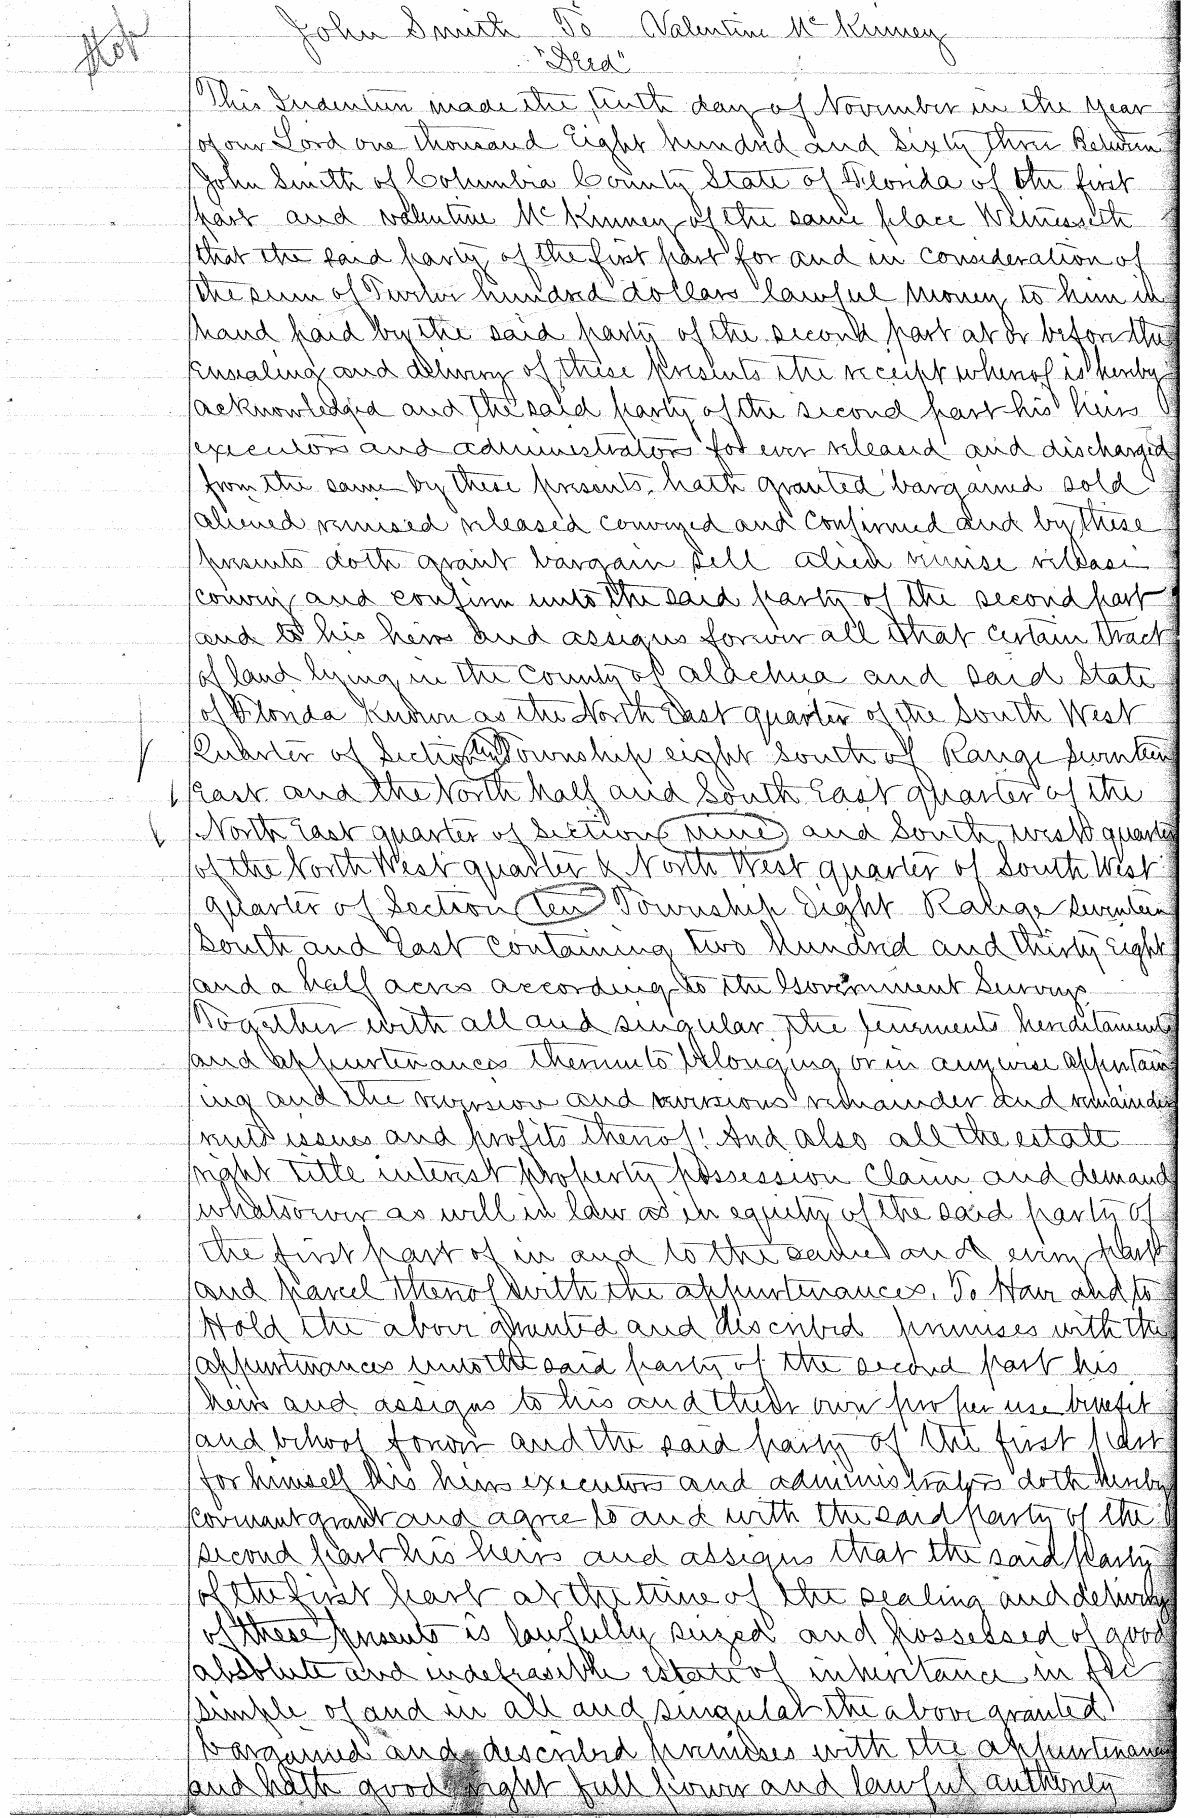 John Smith To Valentine McKinney
"Deed"
This Indenture made the tenth day of November in the year
of our Lord one thousand Eight hundred and Sixty three Between
John Smith of Columbia County State of Florida of the first
part and Valentine McKinney of the same place Witnesseth
that the said party of the first part for and in consideration of
the sum of Twelve hundred dollars lawful money to him in
hand paid by the said party of the second part at or before the
ensealing and delivery of these presents the receipt whereof is hereby
acknowledged and the said party of the second part his heirs
executors and administrators for ever released and discharged
from the same by these presents, hath granted bargained sold
aliened remised released conveyed and confirmed and by these
presents doth grant bargain sell alien remise release
convey and confirm unto the said party of the second part
and to his heirs and assigns forever all that certain tract
of land lying in the County of Alachua and said State
of Florida known as the North East quarter of the South West
Quarter of Section Township eight South of Range seventeen
East and the North half and South East quarter of the
North East quarter of Section nine and South west quarter
of the North West quarter & North West quarter of South West
quarter of Section ten Township Eight Range seventeen
South and East containing two hundred and thirty eight
and a half acres according to the Government Surveys
Together with all and singular the tenements hereditaments
and appurtenances thereunto belonging or in any wise appertain
ing and the reversion and reversions remainder and remainders
rents issues and profits thereof! And also all the estate
right title interest property possession claim and demand
whatsoever as well in law as in equity of the said party of
the first part of in and to the same and every part
and parcel thereof with the appurtenances. To Have and to
Hold the above granted and described premises with the
appurtenances unto the said party of the second part his
heirs and assigns to his and their own proper use benefit
and behoof forever and the said party of the first part
for himself his heirs executors and administrators doth hereby
covenant grant and agree to and with the said party of the
second part his heirs and assigns that the said party
of the first part at the time of the sealing and delivery
of these presents is lawfully seized and possessed of good
absolute and indefeasible estate of inheritance in fee
simple of and in all and singular the above granted
bargained and described premises with the appurtenances
and hath good right full power and lawful authority